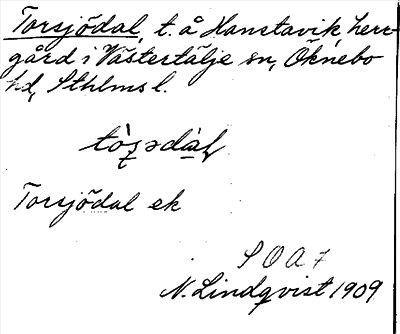 Torsjödal, t. å Hanstavik, herr
gård i Västertälje sn, Öknebo
hd, Sthlms l.
Torsjödal ek
S O A 7
N. Lindqvist 1909